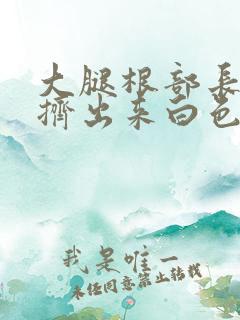 大腿根部長
擠出来白色
我是唯一
未经同意禁止转载